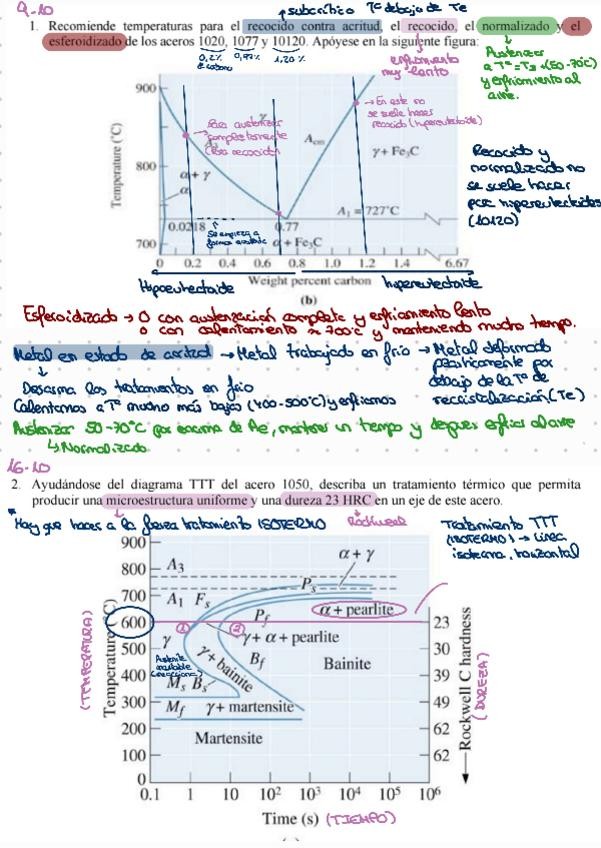 9-10
subcrítico Tª debajo de Te
1. Recomiende temperaturas para el recocido contra acritud, el recocido, el normalizado y el
esferoidizado de los aceros 1020, 1077 y 10120. Apóyese en la siguiente figura:
0,2%
0,77%
1,20%
enfriamiento
muy lento
Austenizar
y enfriamiento al
aire.
900
800
700
Temperature (°C)
Para austenizar
completamente
(Para recocido)
γ
A₃
→ En este no
se suele hacer
recocido (hipereutectoide)
Acm
γ + Fe₃C
α + γ
α
A₁ = 727°C
0.0218
0.77
Se empieza a
formar austenita
α + Fe₃C
0 0.2 0.4 0.6 0.8 1.0 1.2 1.4 6.67
Hipoeutectoide
Weight percent carbon
hipereutectoide
(b)
Recocido y
normalizado no
se suele hacer
para hipereutectoides
(10120)
Esferoidizado → o con austenización completa y enfriamiento lento
o con calentamiento ≈ 700°C y manteniendo mucho tiempo.
Metal en estado de acritud → Metal trabajado en frío → Metal deformado
plásticamente por
debajo de la Tª de
recristalización (Te)
los tratamientos en frío
Calentamos a Tª mucho más bajas (400-500°C) y enfriamos
Austenizar 50-70°C por encima de Ae, mantener un tiempo y después enfriar al aire
↳ Normalizado.
16-10
2. Ayudándose del diagrama TTT del acero 1050, describa un tratamiento térmico que permita
producir una microestructura uniforme y una dureza 23 HRC en un eje de este acero.
* Hay que hacer a la fuerza tratamiento ISOTERMO
Rockwell
Tratamiento TTT
(ISOTERMO) → Línea
isoterma, horizontal
900
800
700
600
500
400
300
200
100
0
(TEMPERATURA)
Temperature (°C)
A₃
A₁
α + γ
Fs
Ps
Pf
α + pearlite
1
2
γ
γ + α + pearlite
Austenita
inestable
γ + bainite
Bf
Bainite
Ms
Bs
Mf
γ + martensite
Martensite
23
30
39
49
62
62
Rockwell C hardness
(DUREZA)
0.1 1 10 10² 10³ 10⁴ 10⁵ 10⁶
Time (s) (TIEMPO)